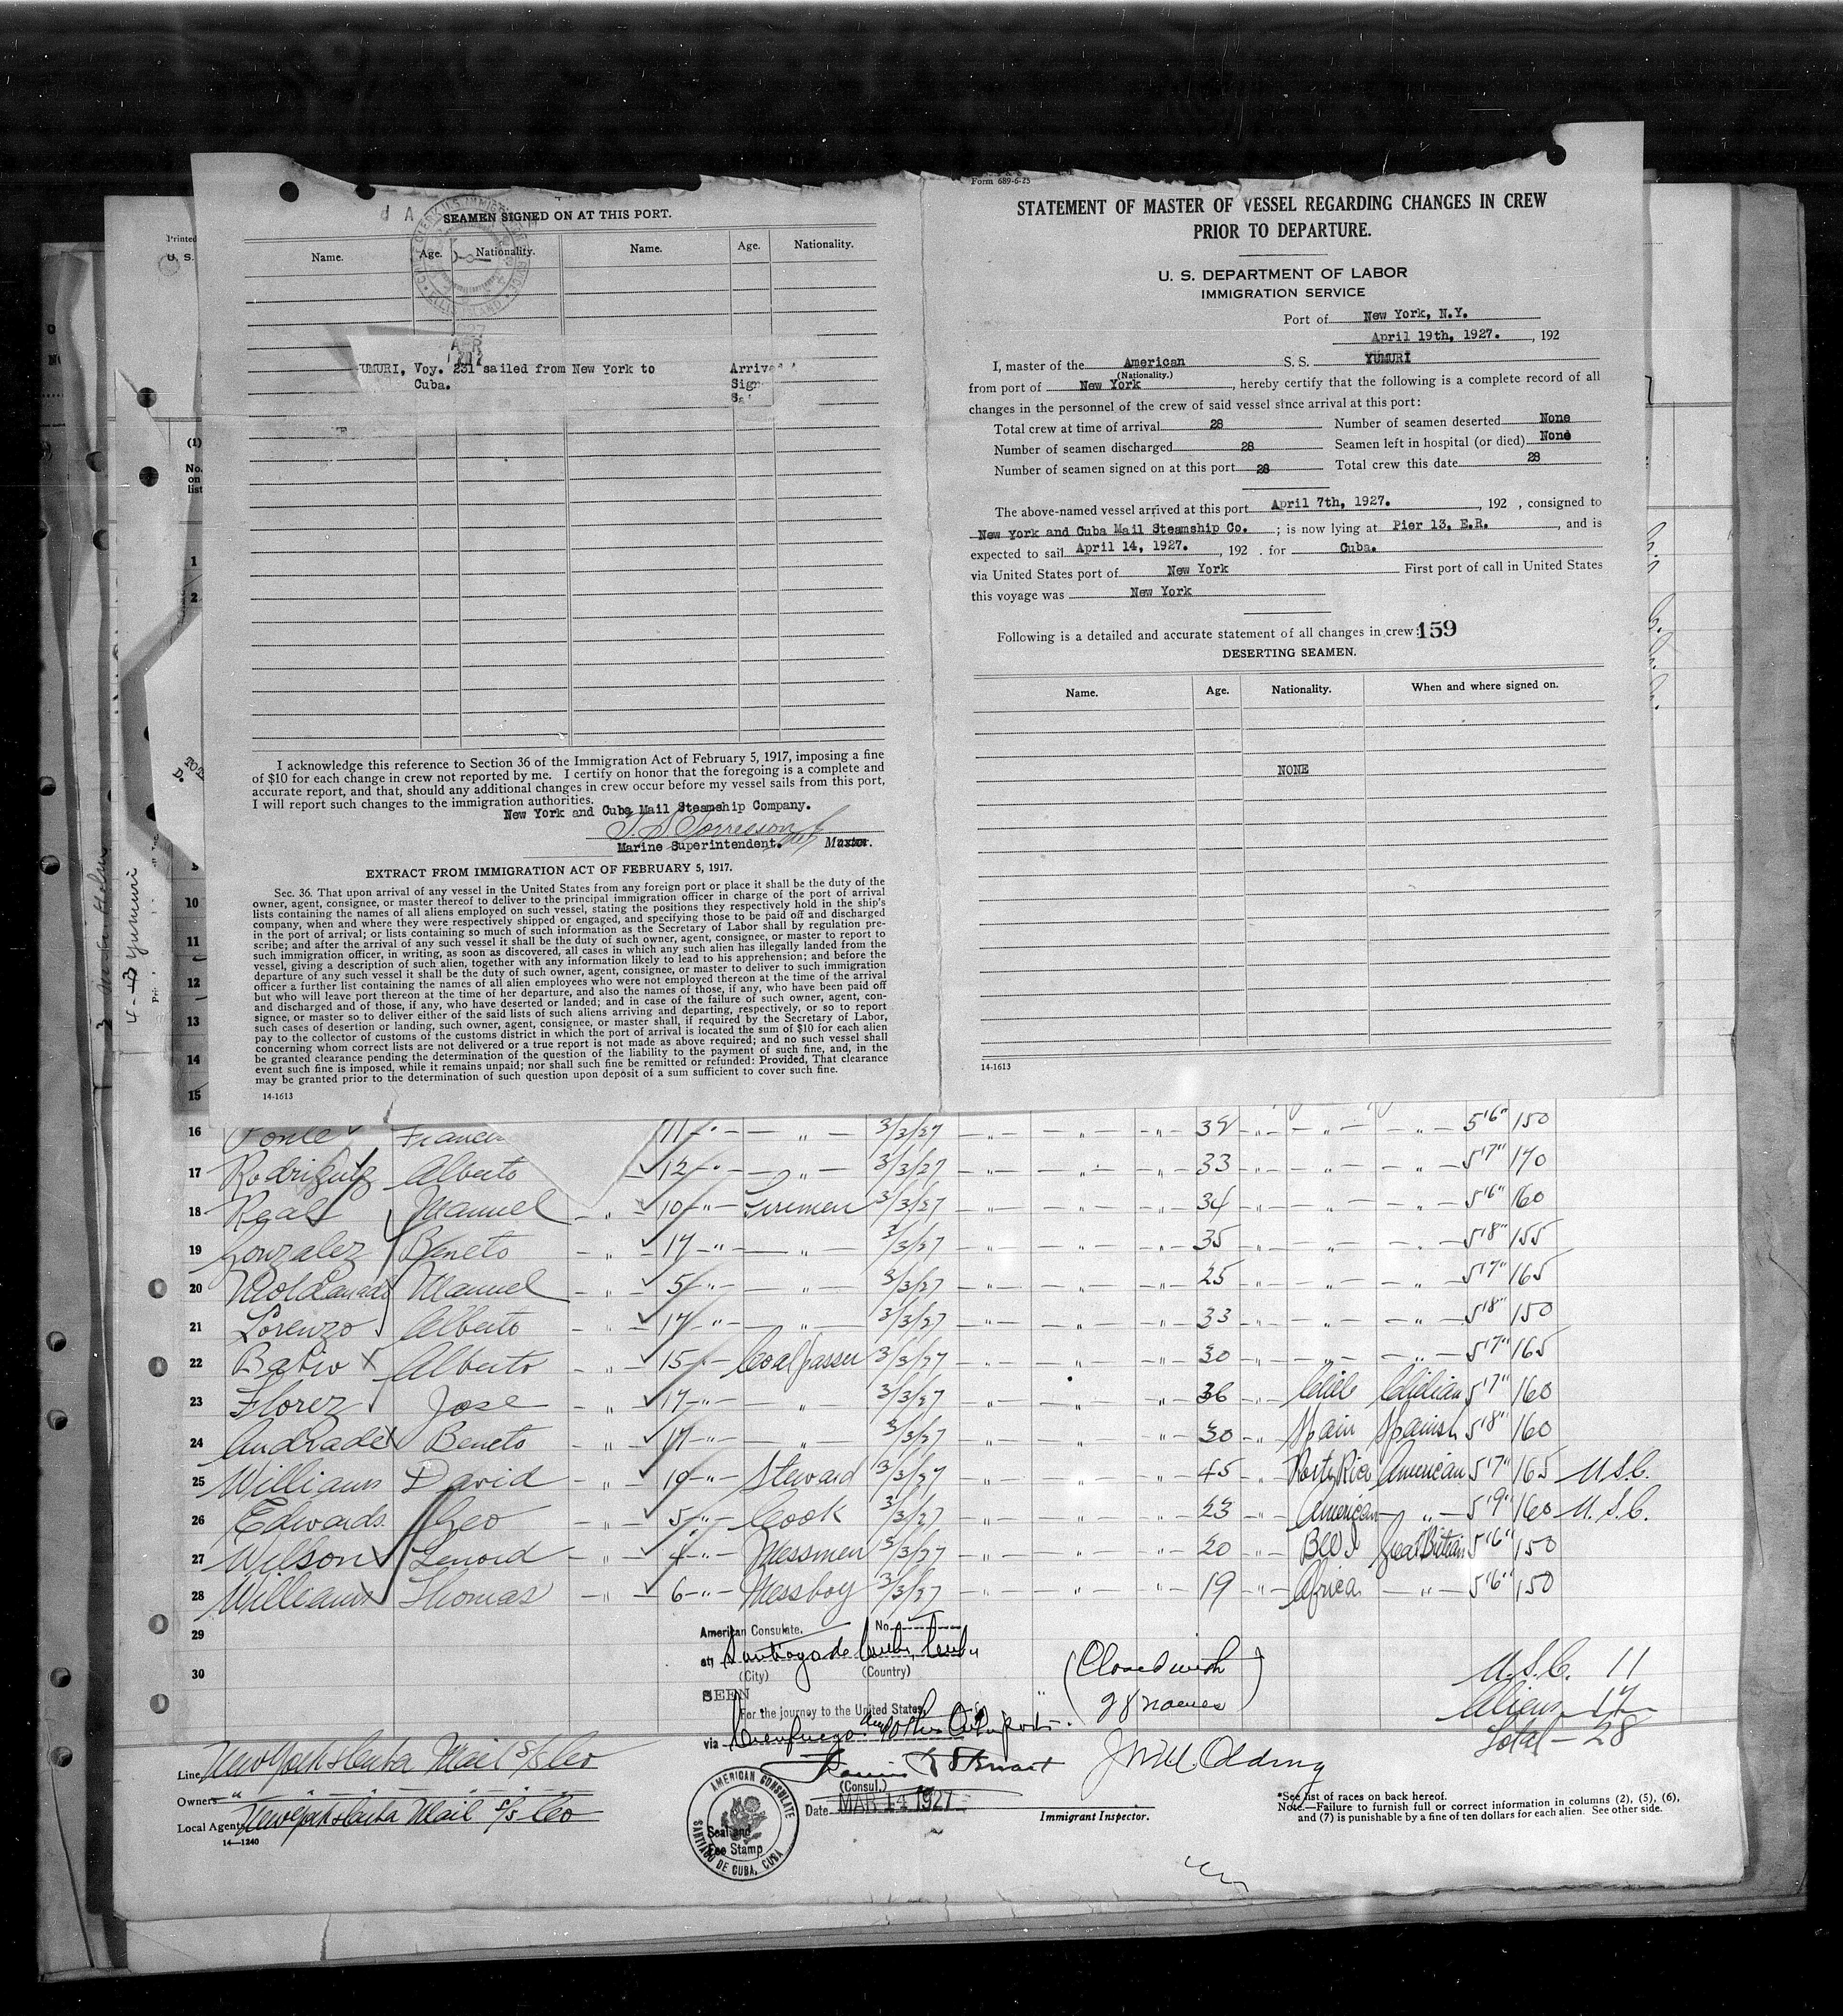 SEAMEN SIGNED ON AT THIS PORT.
Name. Age. Nationality. Name. Age. Nationality.
UMURI, Voy. 231 sailed from New York to
Cuba.
I acknowledge this reference to Section 36 of the Immigration Act of February 5, 1917, imposing a fine
of $10 for each change in crew not reported by me. I certify on honor that the foregoing is a complete and
accurate report, and that, should any additional changes in crew occur before my vessel sails from this port,
I will report such changes to the immigration authorities.
New York and Cuba Mail Steamship Company.
Marine Superintendent.
EXTRACT FROM IMMIGRATION ACT OF FEBRUARY 5, 1917.
Sec. 36. That upon arrival of any vessel in the United States from any foreign port or place it shall be the duty of the
owner, agent, consignee, or master thereof to deliver to the principal immigration officer in charge of the port of arrival
lists containing the names of all aliens employed on such vessel, stating the positions they respectively hold in the ship's
company, when and where they were respectively shipped or engaged, and specifying those to be paid off and discharged
in the port of arrival; or lists containing so much of such information as the Secretary of Labor shall by regulation pre-
scribe; and after the arrival of any such vessel it shall be the duty of such owner, agent, consignee, or master to report to
such immigration officer, in writing, as soon as discovered, all cases in which any such alien has illegally landed from the
vessel, giving a description of such alien, together with any information likely to lead to his apprehension; and before the
departure of any such vessel it shall be the duty of such owner, agent, consignee, or master to deliver to such immigration
officer a further list containing the names of all alien employees who were not employed thereon at the time of the arrival
but who will leave port thereon at the time of her departure, and also the names of those, if any, who have been paid off
and discharged and of those, if any, who have deserted or landed; and in case of the failure of such owner, agent, con-
signee, or master so to deliver either of the said lists of such aliens arriving and departing, respectively, or so to report
such cases of desertion or landing, such owner, agent, consignee, or master shall, if required by the Secretary of Labor,
pay to the collector of customs of the customs district in which the port of arrival is located the sum of $10 for each alien
concerning whom correct lists are not delivered or a true report is not made as above required; and no such vessel shall
be granted clearance pending the determination of the question of the liability to the payment of such fine, and, in the
event such fine is imposed, while it remains unpaid; nor shall such fine be remitted or refunded: Provided, That clearance
may be granted prior to the determination of such question upon deposit of a sum sufficient to cover such fine.
14-1613
Form 689-6-25
STATEMENT OF MASTER OF VESSEL REGARDING CHANGES IN CREW
PRIOR TO DEPARTURE.
U. S. DEPARTMENT OF LABOR
IMMIGRATION SERVICE
Port of New York, N.Y.
April 19th, 1927. , 192
I, master of the American S. S. YUMURI
(Nationality.)
from port of New York , hereby certify that the following is a complete record of all
changes in the personnel of the crew of said vessel since arrival at this port:
Total crew at time of arrival 28 Number of seamen deserted None
Number of seamen discharged 28 Seamen left in hospital (or died) None
Number of seamen signed on at this port 28 Total crew this date 28
The above-named vessel arrived at this port April 7th, 1927. , 192 , consigned to
New York and Cuba Mail Steamship Co. ; is now lying at Pier 13, E.R. , and is
expected to sail April 14, 1927. , 192 . for Cuba.
via United States port of New York First port of call in United States
this voyage was New York
Following is a detailed and accurate statement of all changes in crew: 159
DESERTING SEAMEN.
Name. Age. Nationality. When and where signed on.
NONE
14-1613
Yumuri
16 11 " 3/3/27 " " " 5'6" 150
17 Rodriguez Alberto 12 " " 3/3/27 " " " 33 " " " 5'7" 170
18 Real Manuel " 10 " Firemen 3/3/27 " " " 34 " " 5'6" 160
19 Gonzalez Beneto " 17 " " 3/3/27 " " " 35 " " " 5'8" 155
20 Manuel " 5 " " 3/3/27 " " " 25 " " " 5'7" 165
21 Lorenzo Alberto " 17 " " 3/3/27 " " " 33 " " " 5'8" 150
22 Alberto " 15 " Coalpasser 3/3/27 " " " 30 " " " 5'7" 165
23 Florez Jose " 17 " " 3/3/27 " " " 36 " Chile Chilian 5'7" 160
24 Andrade Beneto " 17 " " 3/3/27 " " " 30 " Spain Spanish 5'8" 160
25 Williams David " 19 " Steward 3/3/27 " " " 45 " Porto Rico American 5'7" 165 U.S.C.
26 Edwards Geo " 5 " Cook 3/3/27 " " " 23 " American " 5'9" 160 U.S.C.
27 Wilson Lenord " 4 " Messmen 3/3/27 " " " 20 " B W I Great Britian 5'6" 150
28 Williams Thomas " 6 " Messboy 3/3/27 " " " 19 " Africa " 5'6" 150
29
30
American Consulate. No.
at Santiago de Cuba, Cuba
(City) (Country)
SEEN
For the journey to the United States,
via Cienfuegos and other Cuban ports.
(Consul.)
Date MAR 14 1927
AMERICAN CONSULATE
SANTIAGO DE CUBA, CUBA
Seal and
Fee Stamp
(Closed with
28 names)
Immigrant Inspector.
U.S.C. 11
Aliens 17
Total - 28
Line New York & Cuba Mail S/S Co
Owners " " " " " "
Local Agents New York & Cuba Mail S/S Co
14—1240
*See list of races on back hereof.
Note.—Failure to furnish full or correct information in columns (2), (5), (6),
and (7) is punishable by a fine of ten dollars for each alien. See other side.